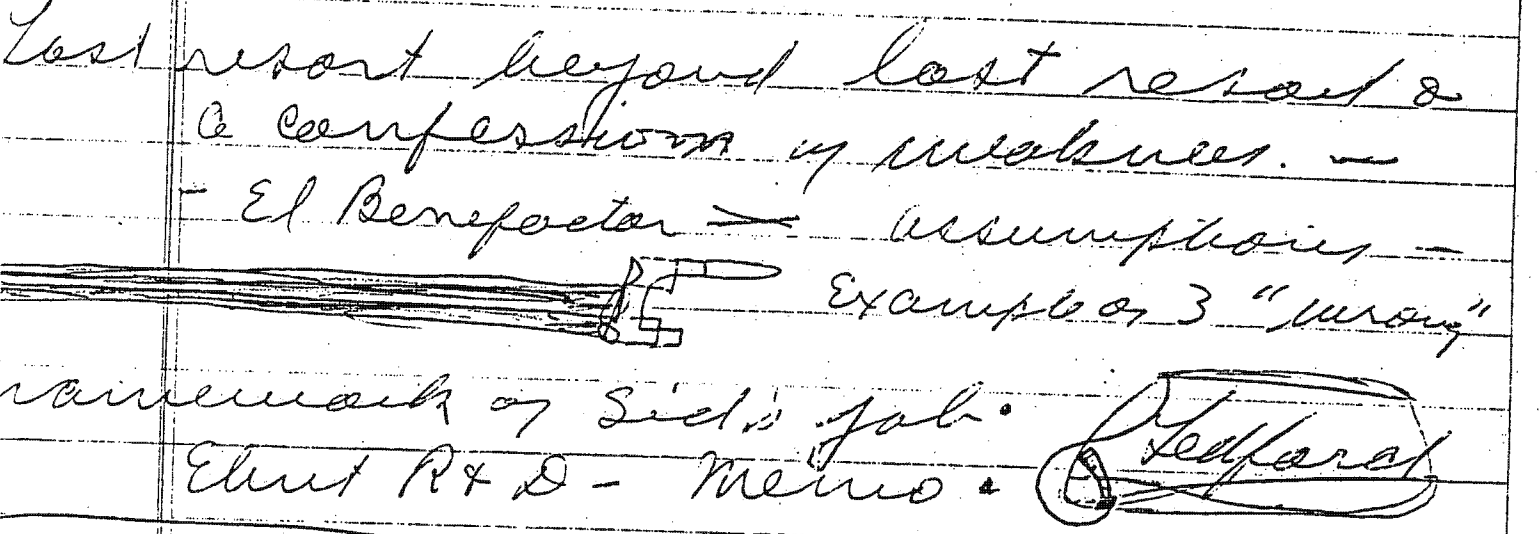 Last resort beyond last resort &
a confession of weakness. —
- El Benefactor — assumptions -
Example of 3 "wrong"
ramework of Sid's job.
R & D - Memo.
Ledford